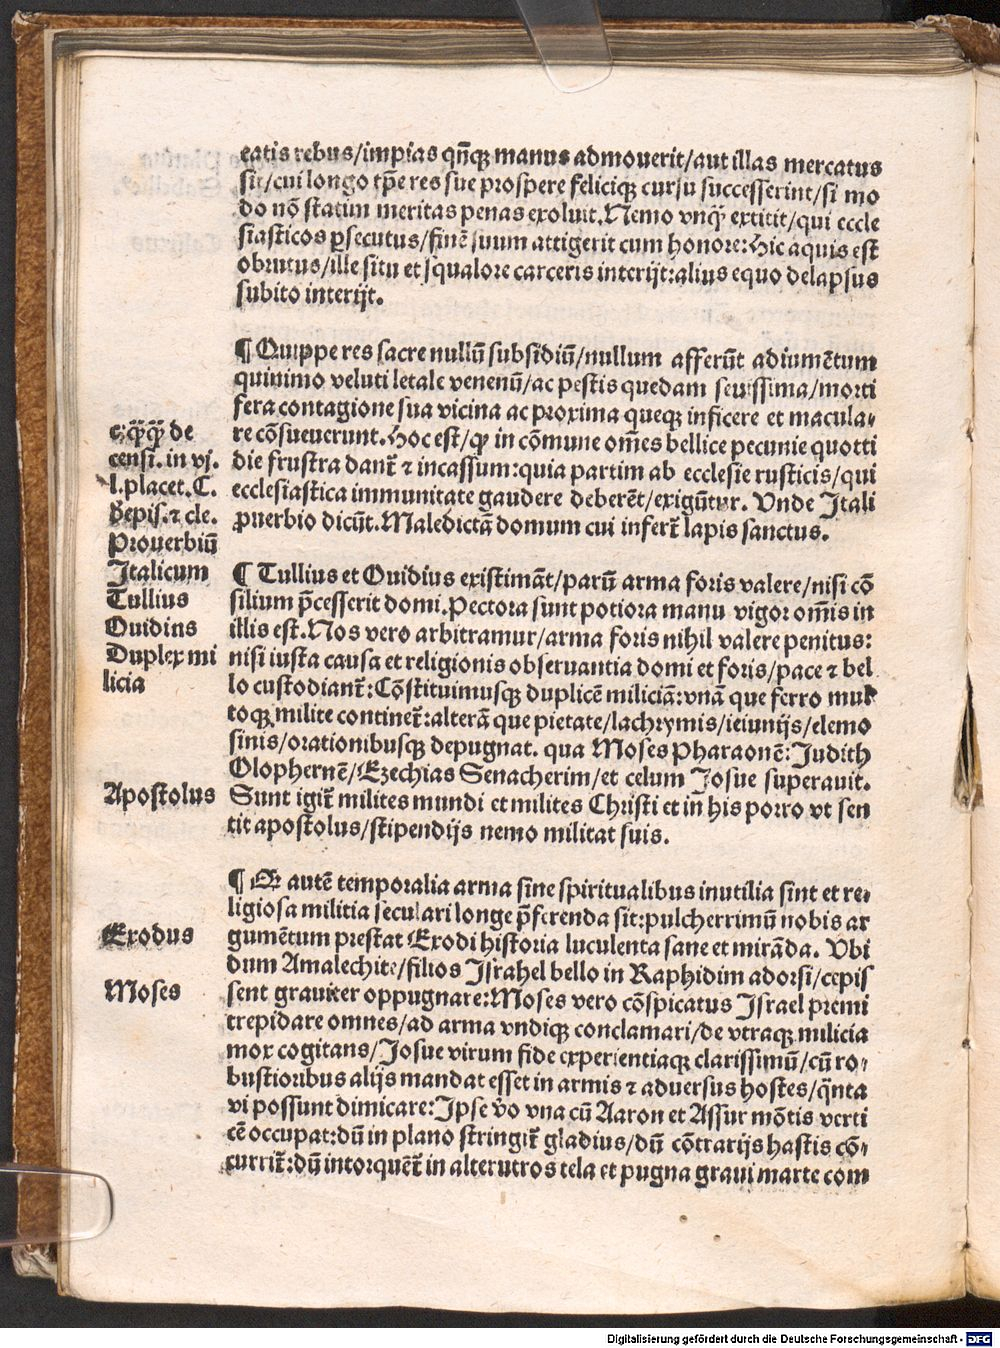 catis rebus/impias qñcꝫ manus admouerit/aut illas mercatus
sit/cui longo tp̄e res sue prospere feliciqꝫ cursu successerint/si mo
do nō statim meritas penas exoluit. Nemo vnq̄ extitit/qui eccle
siasticos ꝑsecutus/finē suum attigerit cum honore: Hic aquis est
obrutus/ille situ et squalore carceris interijt: alius equo delapsus
subito interijt.
¶ Quippe res sacre nullū subsidiū/nullum afferūt adiumētum
quinimo veluti letale venenū/ac pestis quedam seuissima/morti
fera contagione sua vicina ac proxima queqꝫ inficere et macula-
re cōsueuerunt. Hoc est/ꝙ in cōmune om̄es bellice pecunie quotti
die frustra dant᷑ ⁊ incassum: quia partim ab ecclesie rusticis/qui
ecclesiastica immunitate gaudere deberēt/exigūtur. Vnde Itali
ꝓuerbio dicūt. Maledictā domum cui infert᷑ lapis sanctus.
c. q̄q̄ de
censi. in vj.
l. placet. C.
d̄ epis. ⁊ cle.
Prouerbiū
Italicum
Tullius
Ouidius
Duplex mi
licia
¶ Tullius et Ouidius existimāt/parū arma foris valere/nisi cō
silium p̄cesserit domi. Pectora sunt potiora manu vigor om̄is in
illis est. Nos vero arbitramur/arma foris nihil valere penitus:
nisi iusta causa et religionis obseruantia domi et foris/pace ⁊ bel
lo custodiant᷑: Cōstituimusqꝫ duplicē miliciā: vnā que ferro mul
toqꝫ milite continet᷑: alterā que pietate/lachrymis/ieiunijs/elemo
sinis/orationibusqꝫ depugnat. qua Moses Pharaonē: Judith
Olophernē/Ezechias Senacherim/et celum Josue superauit.
Sunt igit᷑ milites mundi et milites Christi et in his porro vt sen
tit apostolus/stipendijs nemo militat suis.
Apostolus
¶ Et autē temporalia arma sine spiritualibus inutilia sint et re-
ligiosa militia seculari longe p̄ferenda sit: pulcherrimū nobis ar
gumētum prestat Exodi historia luculenta sane et mirāda. Vbi
dum Amalechite/filios Israhel bello in Raphidim adorsi/cepis
sent grauiter oppugnare: Moses vero cōspicatus Israel premi
trepidare omnes/ad arma vndiqꝫ conclamari/de vtraqꝫ milicia
mox cogitans/Josue virum fide experientiaqꝫ clarissimū/cū ro-
bustioribus alijs mandat esset in armis ⁊ aduersus hostes/q̄nta
vi possunt dimicare: Ipse v̄o vna cū Aaron et Assur mōtis verti
cē occupat: dū in plano stringit᷑ gladius/dū cōtrarijs hastis cō-
currit᷑: dū intorquēt᷑ in alterutros tela et pugna graui marte com
Exodus
Moses
Digitalisierung gefördert durch die Deutsche Forschungsgemeinschaft - DFG